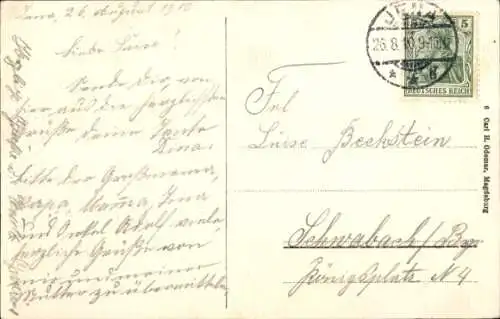 Jena, 26. August 1910
Liebe Luise!
Sende Dir, von
hier aus die herzlichsten
Grüße deine Tante
Lina.
bitte der Großmama,
Papa, Mama, Lina
und Onkel Adolf viele
herzliche Grüße von
mir und meiner
Mutter zu übermitteln
JENA
26.8.10.9-10V.
5
DEUTSCHES REICH
Frl
Luise Beckstein
Schwabach/Bay
Königsplatz N 4
6 Carl H. Odemar, Magdeburg